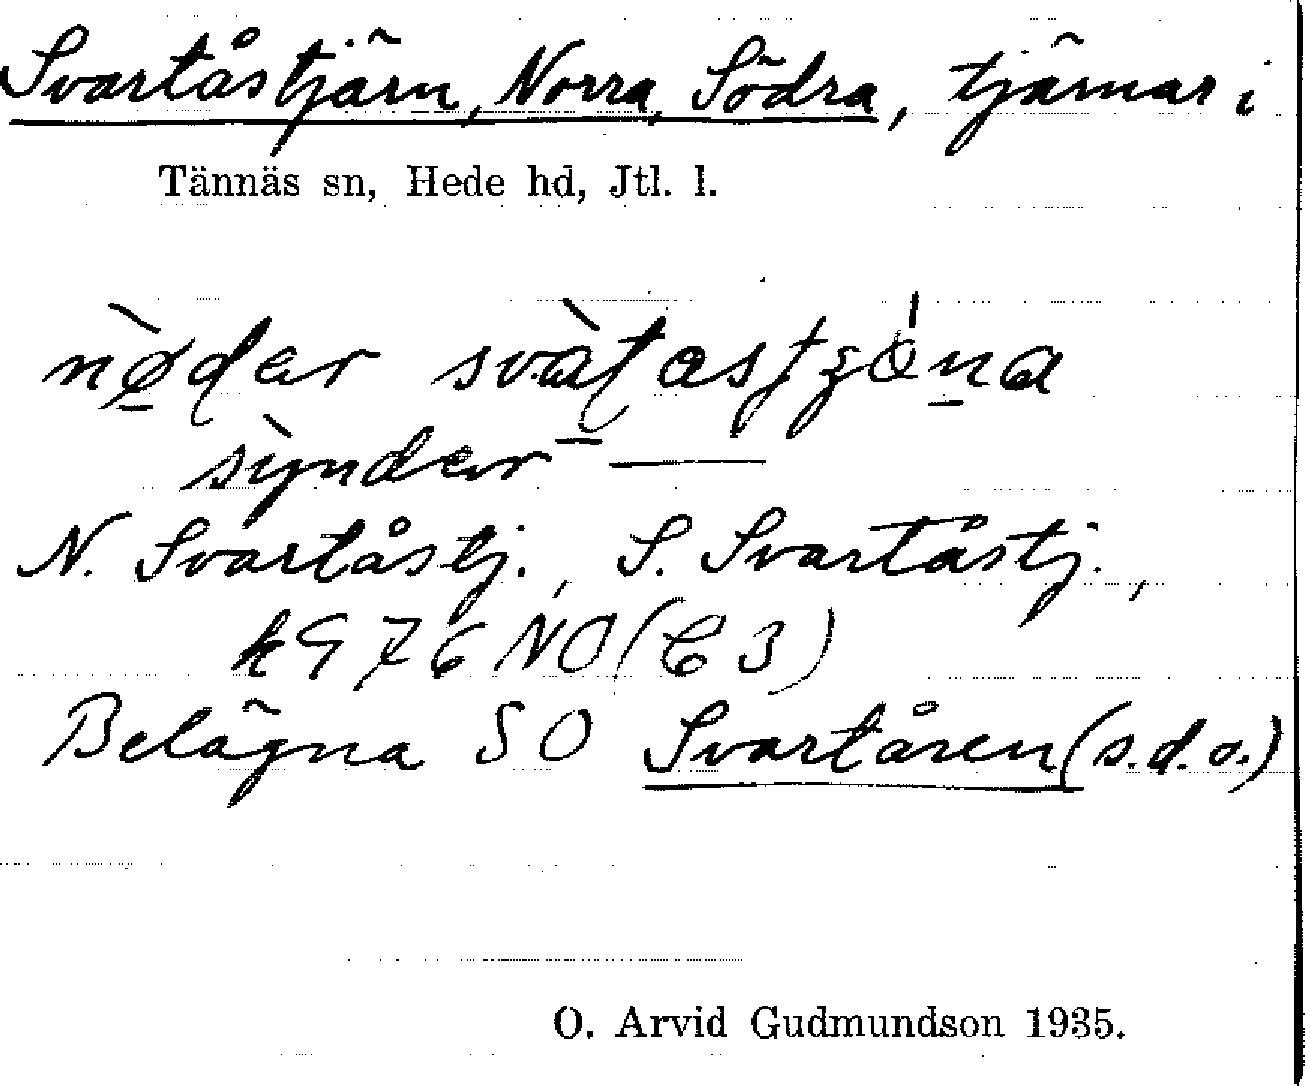 Svartåstjärn, Norra, Södra, tjärnar i
Tännäs sn, Hede hd, Jtl. l.
synder —
N. Svartåstj., S. Svartåstj.,
k976 NO (C3)
Belägna SO Svartåren (s.d.o.)
O. Arvid Gudmundson 1935.